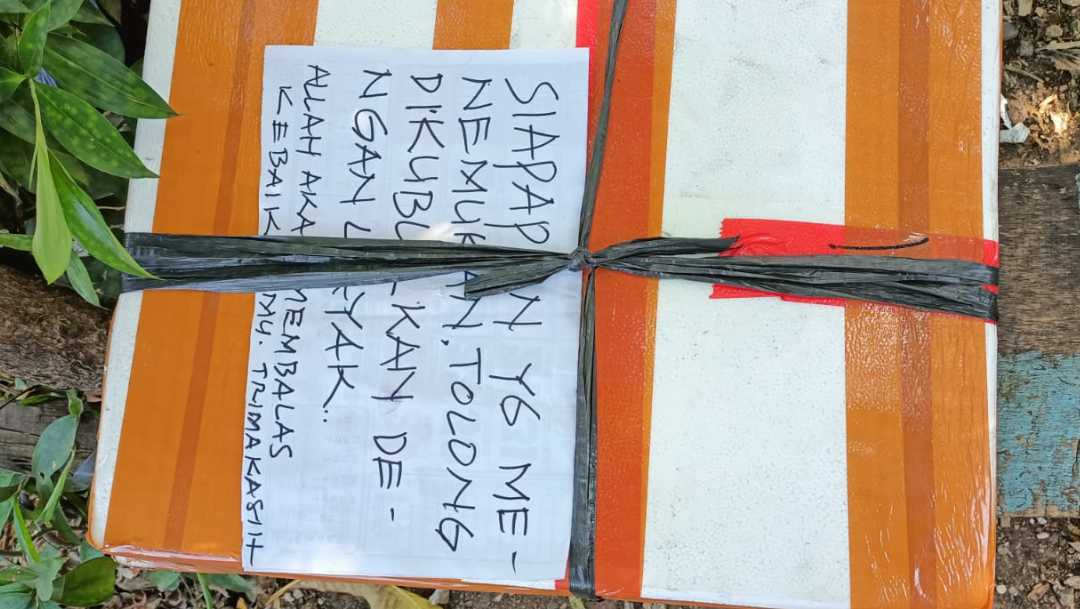 SIAPAPUN YG ME-
NEMUKAN, TOLONG
DIKUBURKAN DE-
NGAN LAYAK..
ALLAH AKAN MEMBALAS
KEBAIKANMU. TRIMAKASIH